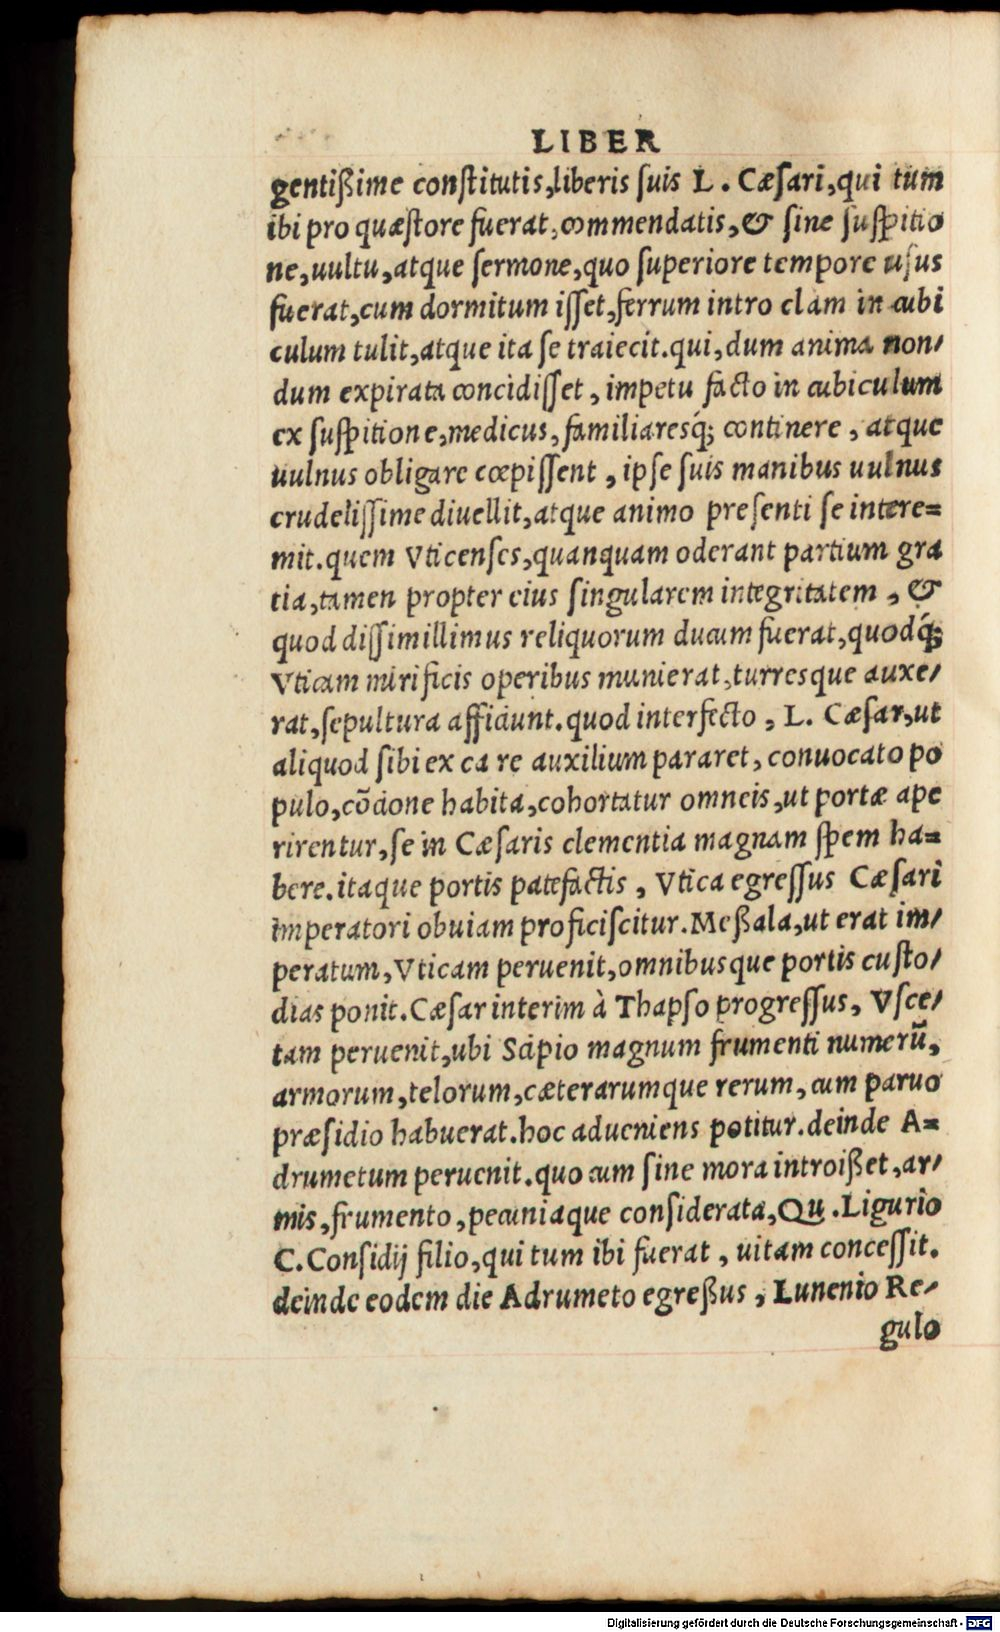 LIBER
gentißime constitutis, liberis suis L. Cæsari, qui tum
ibi pro quæstore fuerat, commendatis, & sine suspitio
ne, uultu, atque sermone, quo superiore tempore usus
fuerat, cum dormitum isset, ferrum intro clam in cubi
culum tulit, atque ita se traiecit. qui, dum anima non/
dum expirata concidisset, impetu facto in cubiculum
ex suspitione, medicus, familiaresq́; continere, atque
uulnus obligare cœpissent, ipse suis manibus uulnus
crudelissime diuellit, atque animo presenti se intere=
mit. quem Vticenses, quanquam oderant partium gra
tia, tamen propter eius singularem integritatem, &
quod dissimillimus reliquorum ducum fuerat, quodq́;
Vticam mirificis operibus munierat, turresque auxe/
rat, sepultura afficiunt. quod interfecto, L. Cæsar, ut
aliquod sibi ex ea re auxilium pararet, conuocato po
pulo, cõcione habita, cohortatur omneis, ut portæ ape
rirentur, se in Cæsaris clementia magnam spem ha=
bere. itaque portis patefactis, Vtica egressus Cæsari
imperatori obuiam proficiscitur. Meßala, ut erat im/
peratum, Vticam peruenit, omnibusque portis custo/
dias ponit. Cæsar interim à Thapso progressus, Vsce/
tam peruenit, ubi Scipio magnum frumenti numerũ,
armorum, telorum, cæterarumque rerum, cum paruo
præsidio habuerat. hoc adueniens potitur. deinde A=
drumetum peruenit. quo cum sine mora introißet, ar/
mis, frumento, pecuniaque considerata, Qu. Ligurio
C. Considij filio, qui tum ibi fuerat, uitam concessit.
deinde eodem die Adrumeto egreßus, Lunenio Re/
gulo
Digitalisierung gefördert durch die Deutsche Forschungsgemeinschaft - DFG